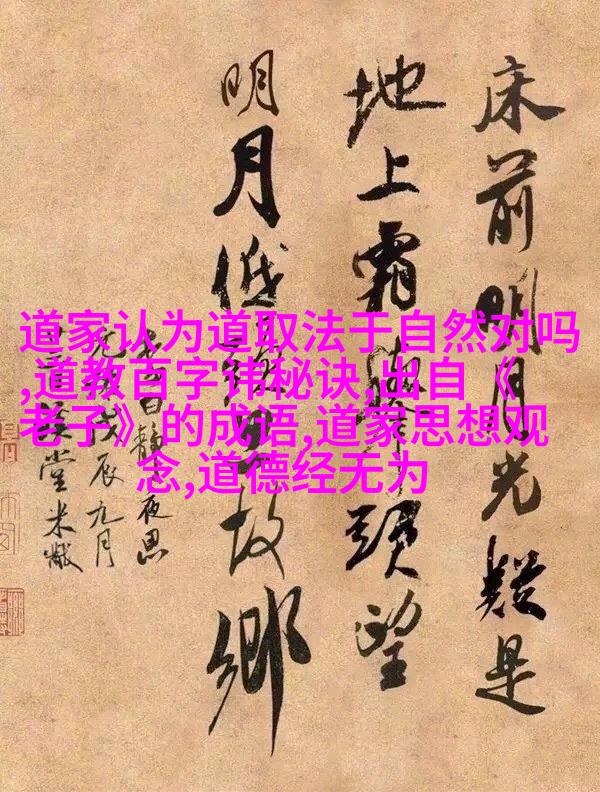 床前明月光疑是
地上霜舉頭望
明月低頭思故鄉
李白靜夜思
元戊辰九月
溪堂米黻
道家认为道取法于自然对吗
,道教百字讳秘诀,出自《
老子》的成语,道家思想观
念,道德经无为